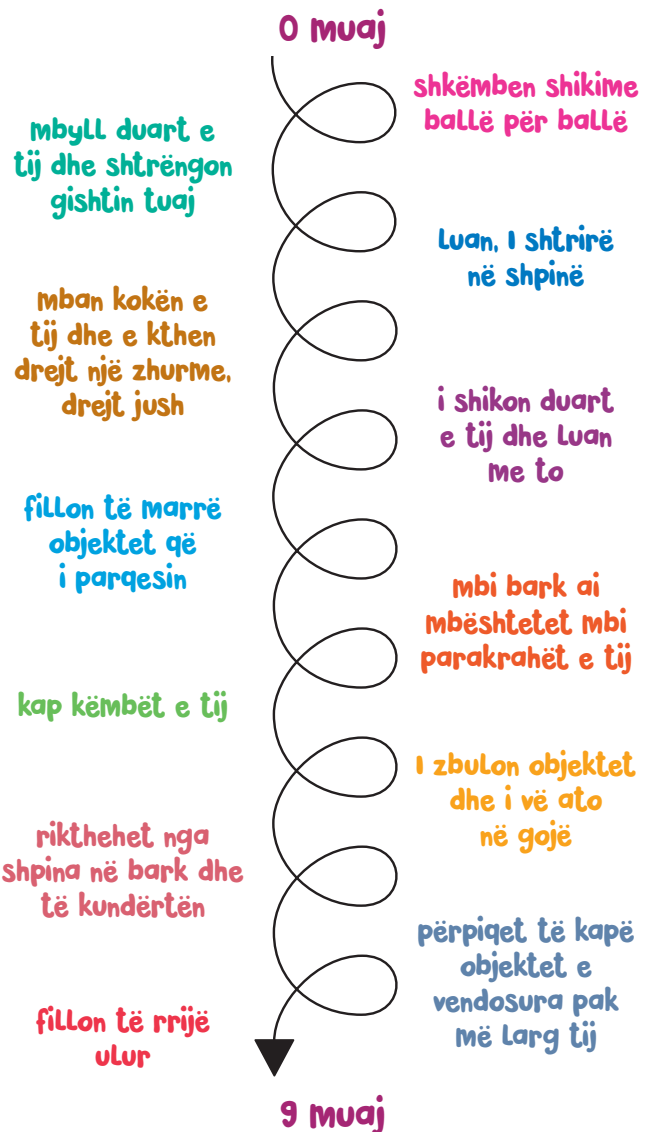 0 muaj
shkëmben shikime
ballë për ballë
mbyll duart e
tij dhe shtrëngon
gishtin tuaj
luan, I shtrirë
në shpinë
mban kokën e
tij dhe e kthen
drejt një zhurme,
drejt jush
i shikon duart
e tij dhe luan
me to
fillon të marrë
objektet që
i parqesin
mbi bark ai
mbështetet mbi
parakrahët e tij
kap këmbët e tij
I zbulon objektet
dhe i vë ato
në gojë
rikthehet nga
shpina në bark dhe
të kundërtën
përpiqet të kapë
objektet e
vendosura pak
më larg tij
fillon të rrijë
ulur
9 muaj